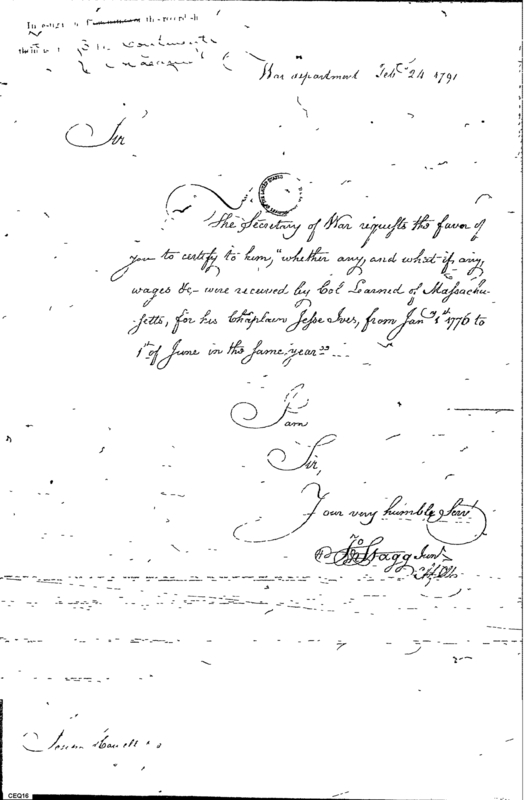 War department Feb. 24 1791
Sir
The Secretary of War requests the favor of
you to certify to him, "whether any, and what if any,
wages &c. were received by Col. Learned of Massachu-
setts, for his Chaplain Jesse Ives, from Jany. 1st 1776 to
1st of June in the same year"
I am
Sir,
Your very humble Serv
Jo Stagg Junr
Joseph Howell
CEQ16